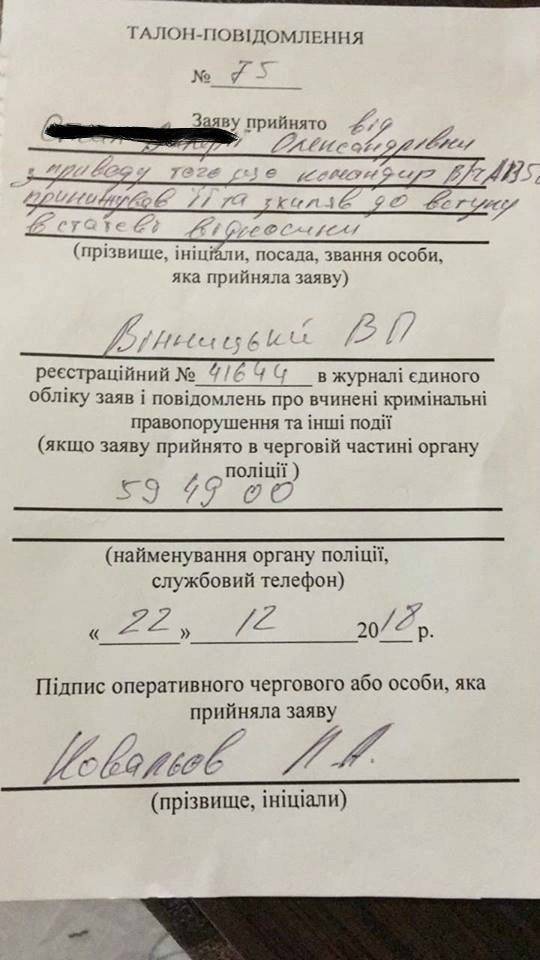 ТАЛОН-ПОВІДОМЛЕННЯ
№ 75
Заяву прийнято від
Олександрівни
з приводу того що командир В/Ч
принижував її та схиляв до вступу
в статеві відносини
(прізвище, ініціали, посада, звання особи,
яка прийняла заяву)
Вінницький ВП
реєстраційний № 41644 в журналі єдиного
обліку заяв і повідомлень про вчинені кримінальні
правопорушення та інші події
(якщо заяву прийнято в черговій частині органу
поліції )
59 49 00
(найменування органу поліції,
службовий телефон)
« 22 » 12 2018 р.
Підпис оперативного чергового або особи, яка
прийняла заяву
Ковальов П.А.
(прізвище, ініціали)